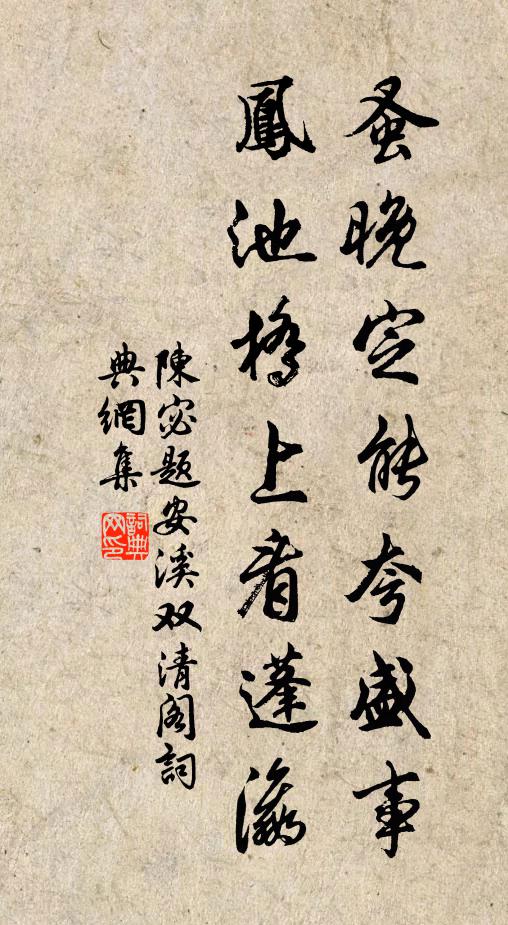 蚤晚定能夸盛事
鳳池橋上看蓬瀛
陳宓題安溪双清阁詞
典網集
詞典
网印